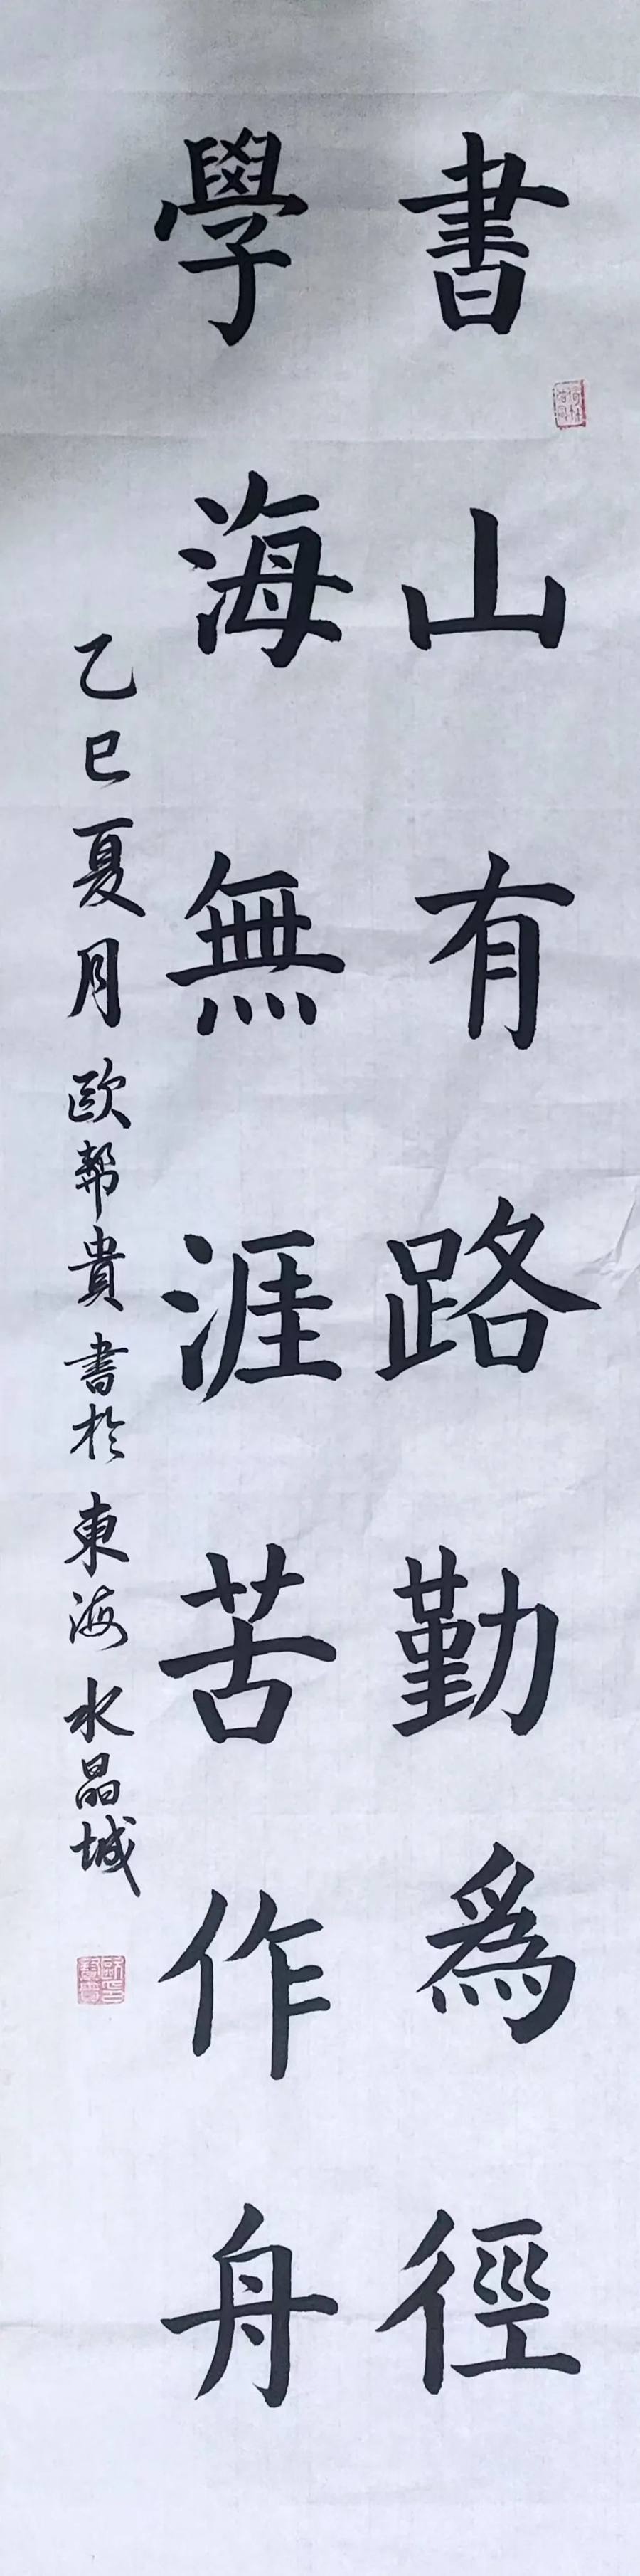 書山有路勤為徑
學海無涯苦作舟
乙巳夏月歐幫貴書於東海水晶城